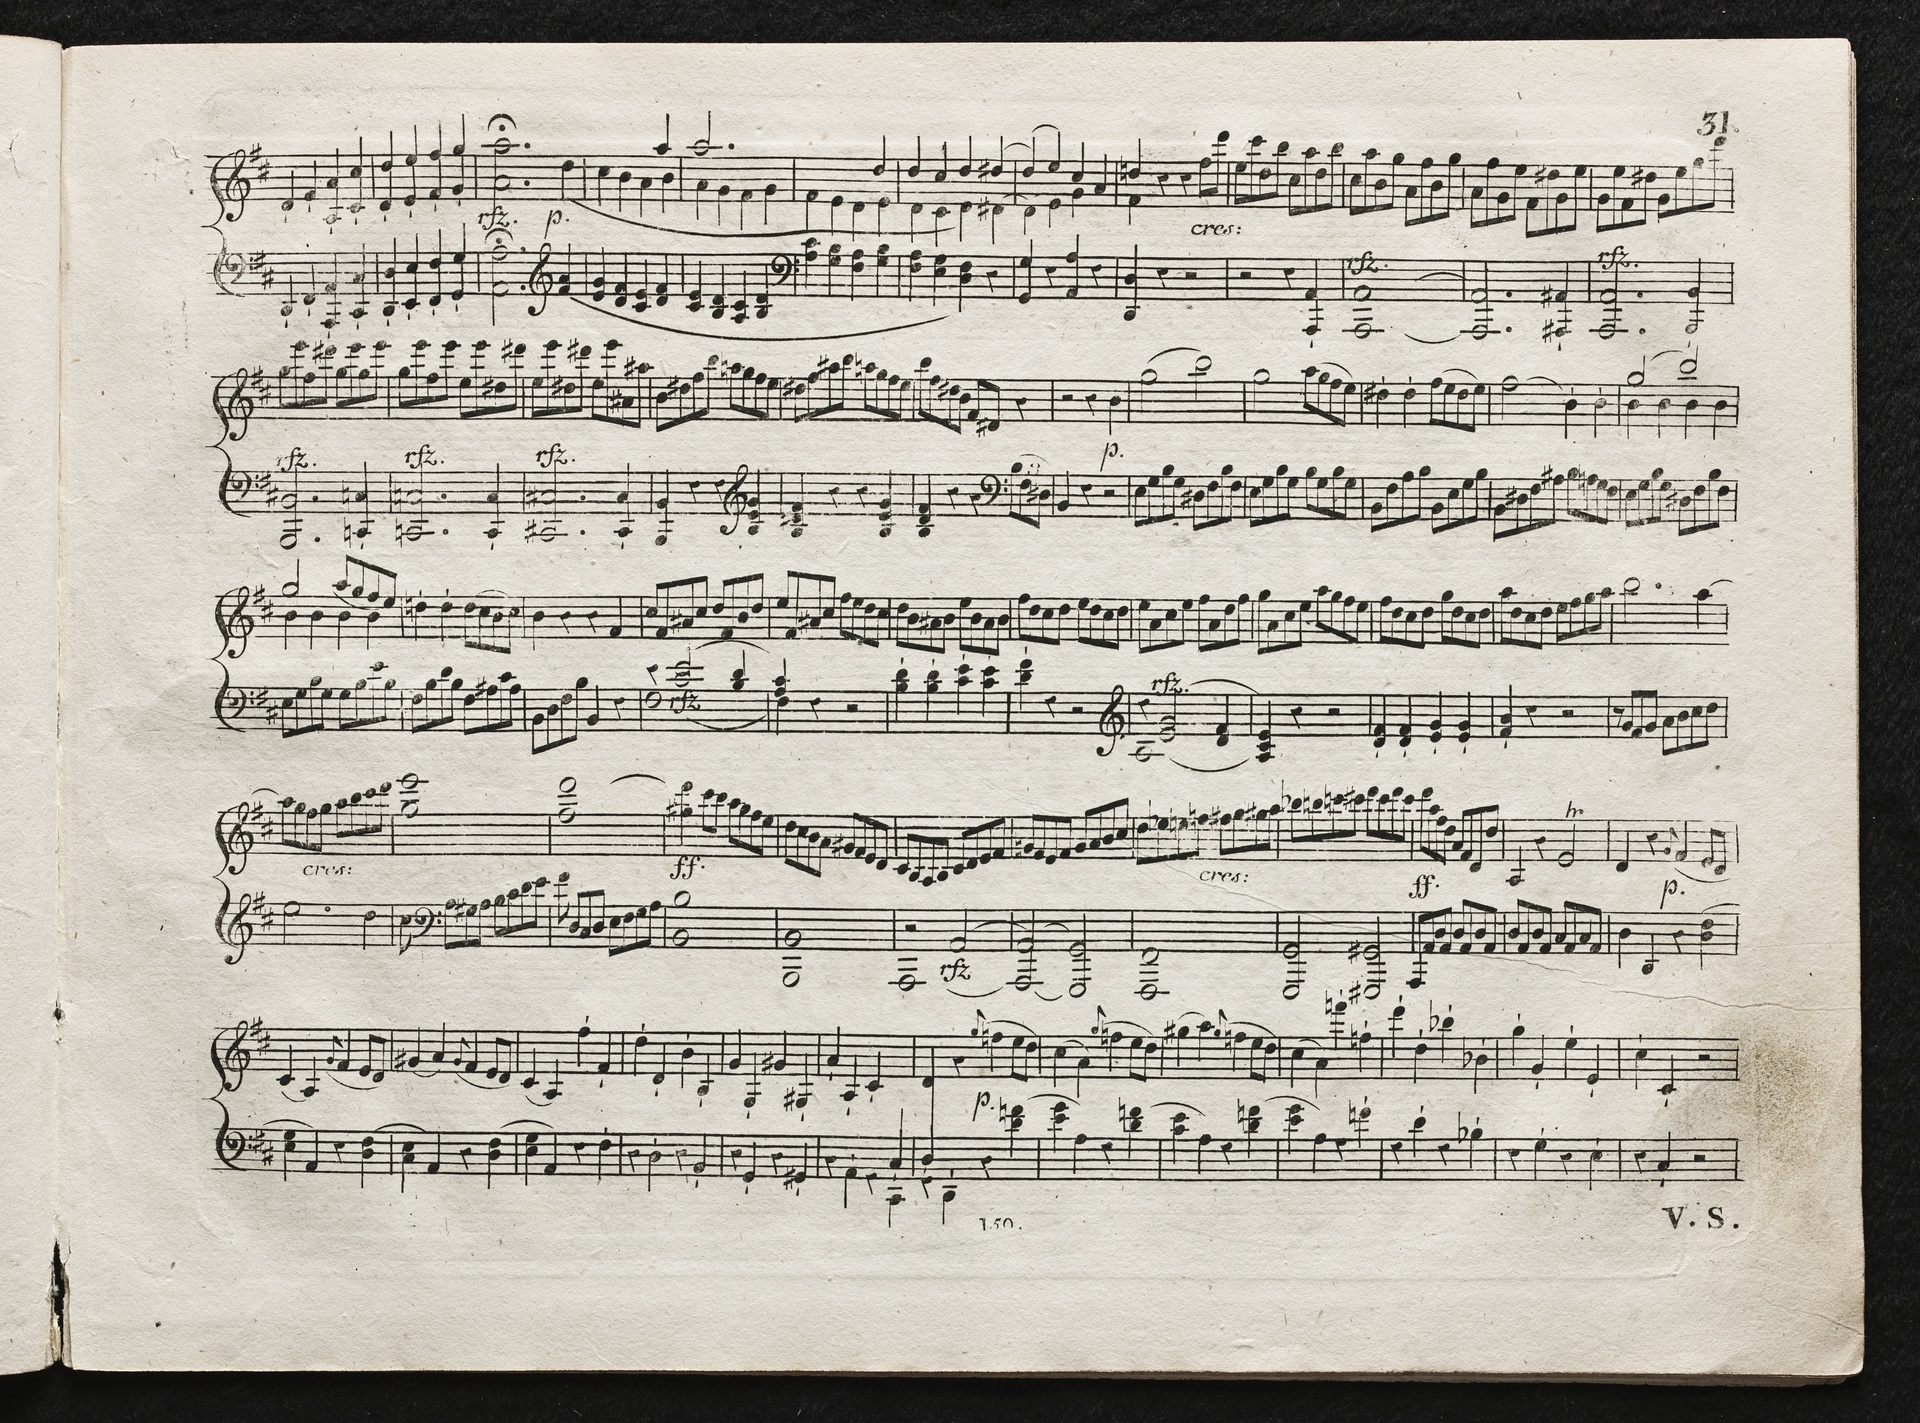 31.
rfz. p. cres:
rfz. rfz.
rfz. rfz. rfz. p.
rfz rfz.
cres: ff. cres: ff. tr p.
rfz
p.
150.
V. S.